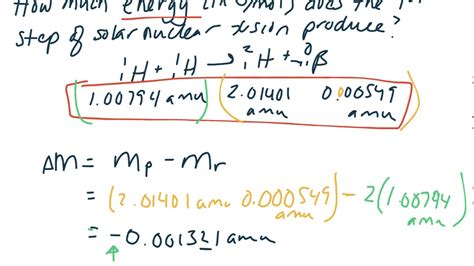 How much energy (in J/mol) does the 1st
step of solar nuclear fusion produce?
¹₁H + ¹₁H → ²₁H + ⁰₁β
1.00794 amu 2.01401 amu 0.00549 amu
ΔM = Mp - Mr
= (2.01401 amu 0.000549 amu) - 2(1.00794 amu)
= -0.001321 amu